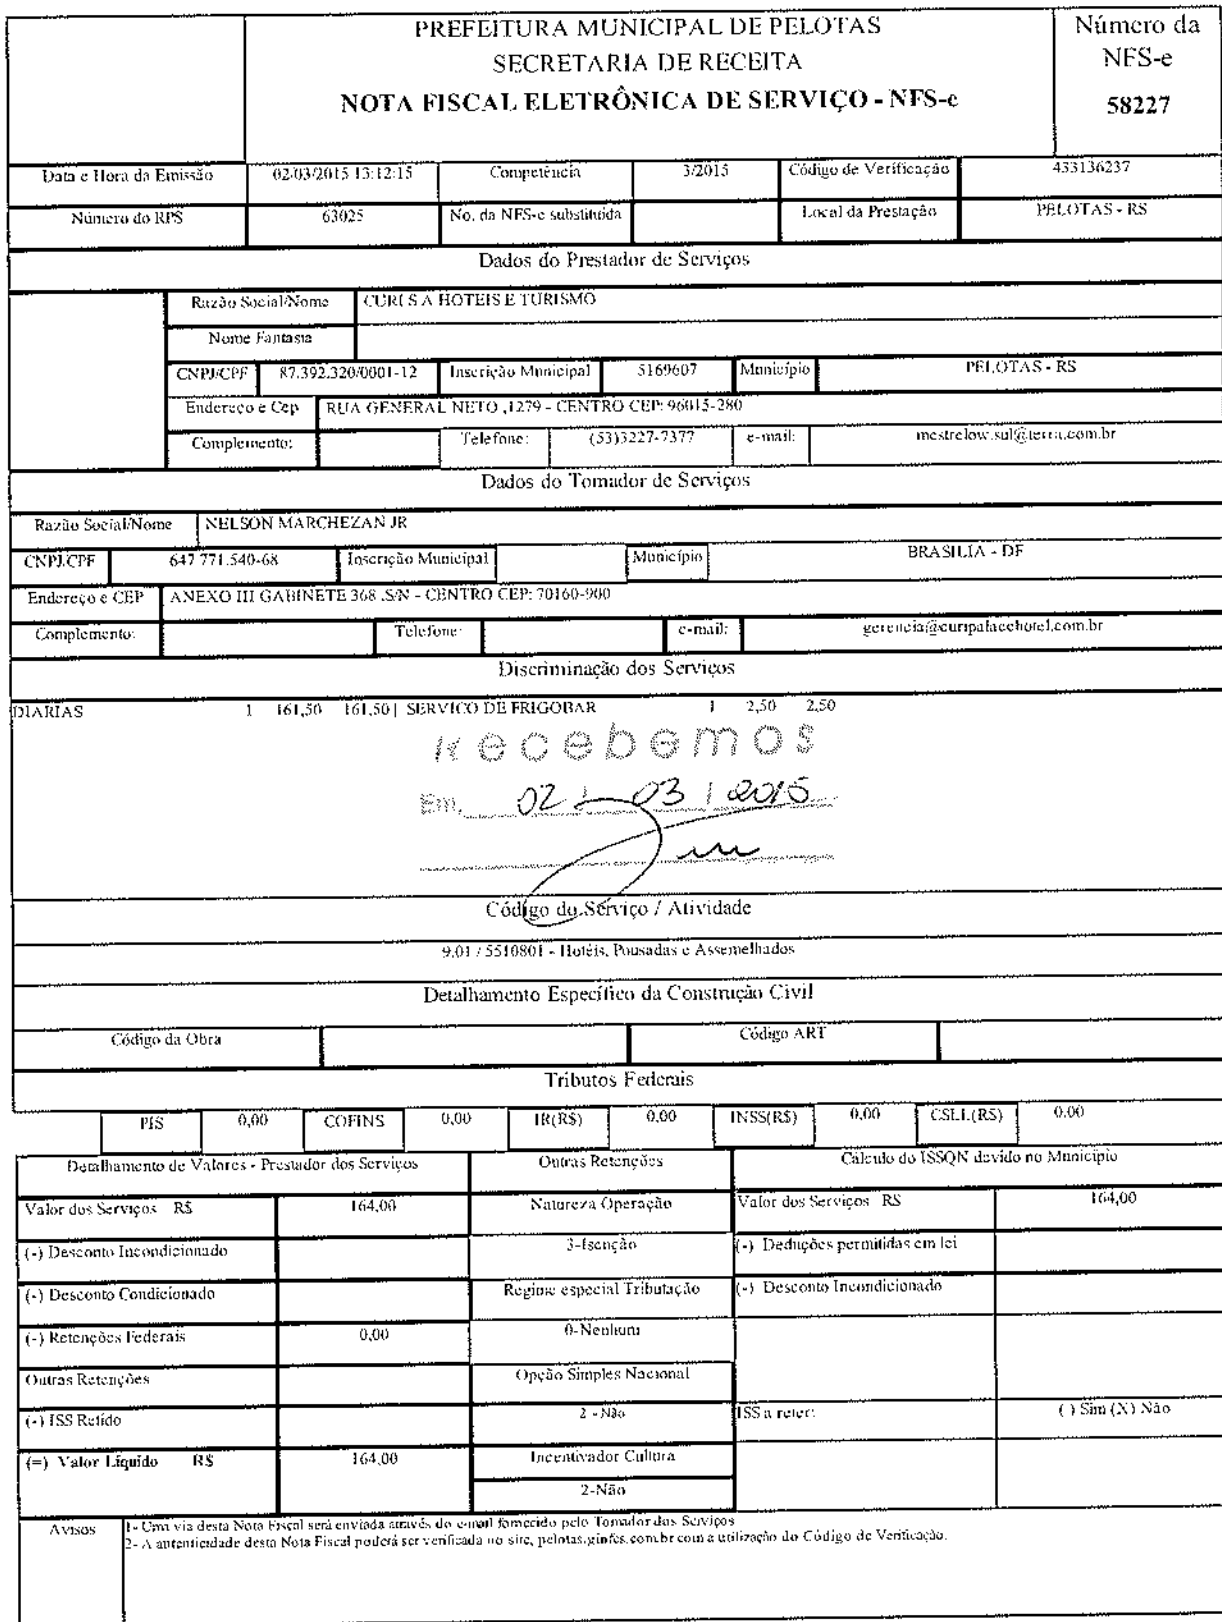 PREFEITURA MUNICIPAL DE PELOTAS
SECRETARIA DE RECEITA
NOTA FISCAL ELETRÔNICA DE SERVIÇO - NFS-e
Número da
NFS-e
58227
Data e Hora da Emissão 02/03/2015 13:12:15 Competência 3/2015 Código de Verificação 433136237
Número do RPS 63025 No. da NFS-e substituída Local da Prestação PELOTAS - RS
Dados do Prestador de Serviços
Razão Social/Nome CURI S A HOTEIS E TURISMO
Nome Fantasia
CNPJ/CPF 87.392.320/0001-12 Inscrição Municipal 5169607 Município PELOTAS - RS
Endereço e Cep RUA GENERAL NETO ,1279 - CENTRO CEP: 96015-280
Complemento: Telefone: (53)3227-7377 e-mail: mestrelow.sul@terra.com.br
Dados do Tomador de Serviços
Razão Social/Nome NELSON MARCHEZAN JR
CNPJ/CPF 647.771.540-68 Inscrição Municipal Município BRASILIA - DF
Endereço e CEP ANEXO III GABINETE 368 ,S/N - CENTRO CEP: 70160-900
Complemento: Telefone: e-mail: gerencia@curipalacehotel.com.br
Discriminação dos Serviços
DIARIAS 1 161,50 161,50 | SERVICO DE FRIGOBAR 1 2,50 2,50
Recebemos
Em, 02 / 03 / 2015
Código do Serviço / Atividade
9.01 / 5510801 - Hotéis, Pousadas e Assemelhados
Detalhamento Específico da Construção Civil
Código da Obra Código ART
Tributos Federais
PIS 0,00 COFINS 0,00 IR(R$) 0,00 INSS(R$) 0,00 CSLL(R$) 0,00
Detalhamento de Valores - Prestador dos Serviços Outras Retenções Cálculo do ISSQN devido no Município
Valor dos Serviços R$ 164,00 Natureza Operação Valor dos Serviços R$ 164,00
(-) Desconto Incondicionado 3-Isenção (-) Deduções permitidas em lei
(-) Desconto Condicionado Regime especial Tributação (-) Desconto Incondicionado
(-) Retenções Federais 0,00 0-Nenhum
Outras Retenções Opção Simples Nacional
(-) ISS Retido 2 - Não ISS a reter: ( ) Sim (X) Não
(=) Valor Líquido R$ 164,00 Incentivador Cultura
2-Não
Avisos 1- Uma via desta Nota Fiscal será enviada através do e-mail fornecido pelo Tomador dos Serviços
2- A autenticidade desta Nota Fiscal poderá ser verificada no site, pelotas.ginfes.com.br com a utilização do Código de Verificação.